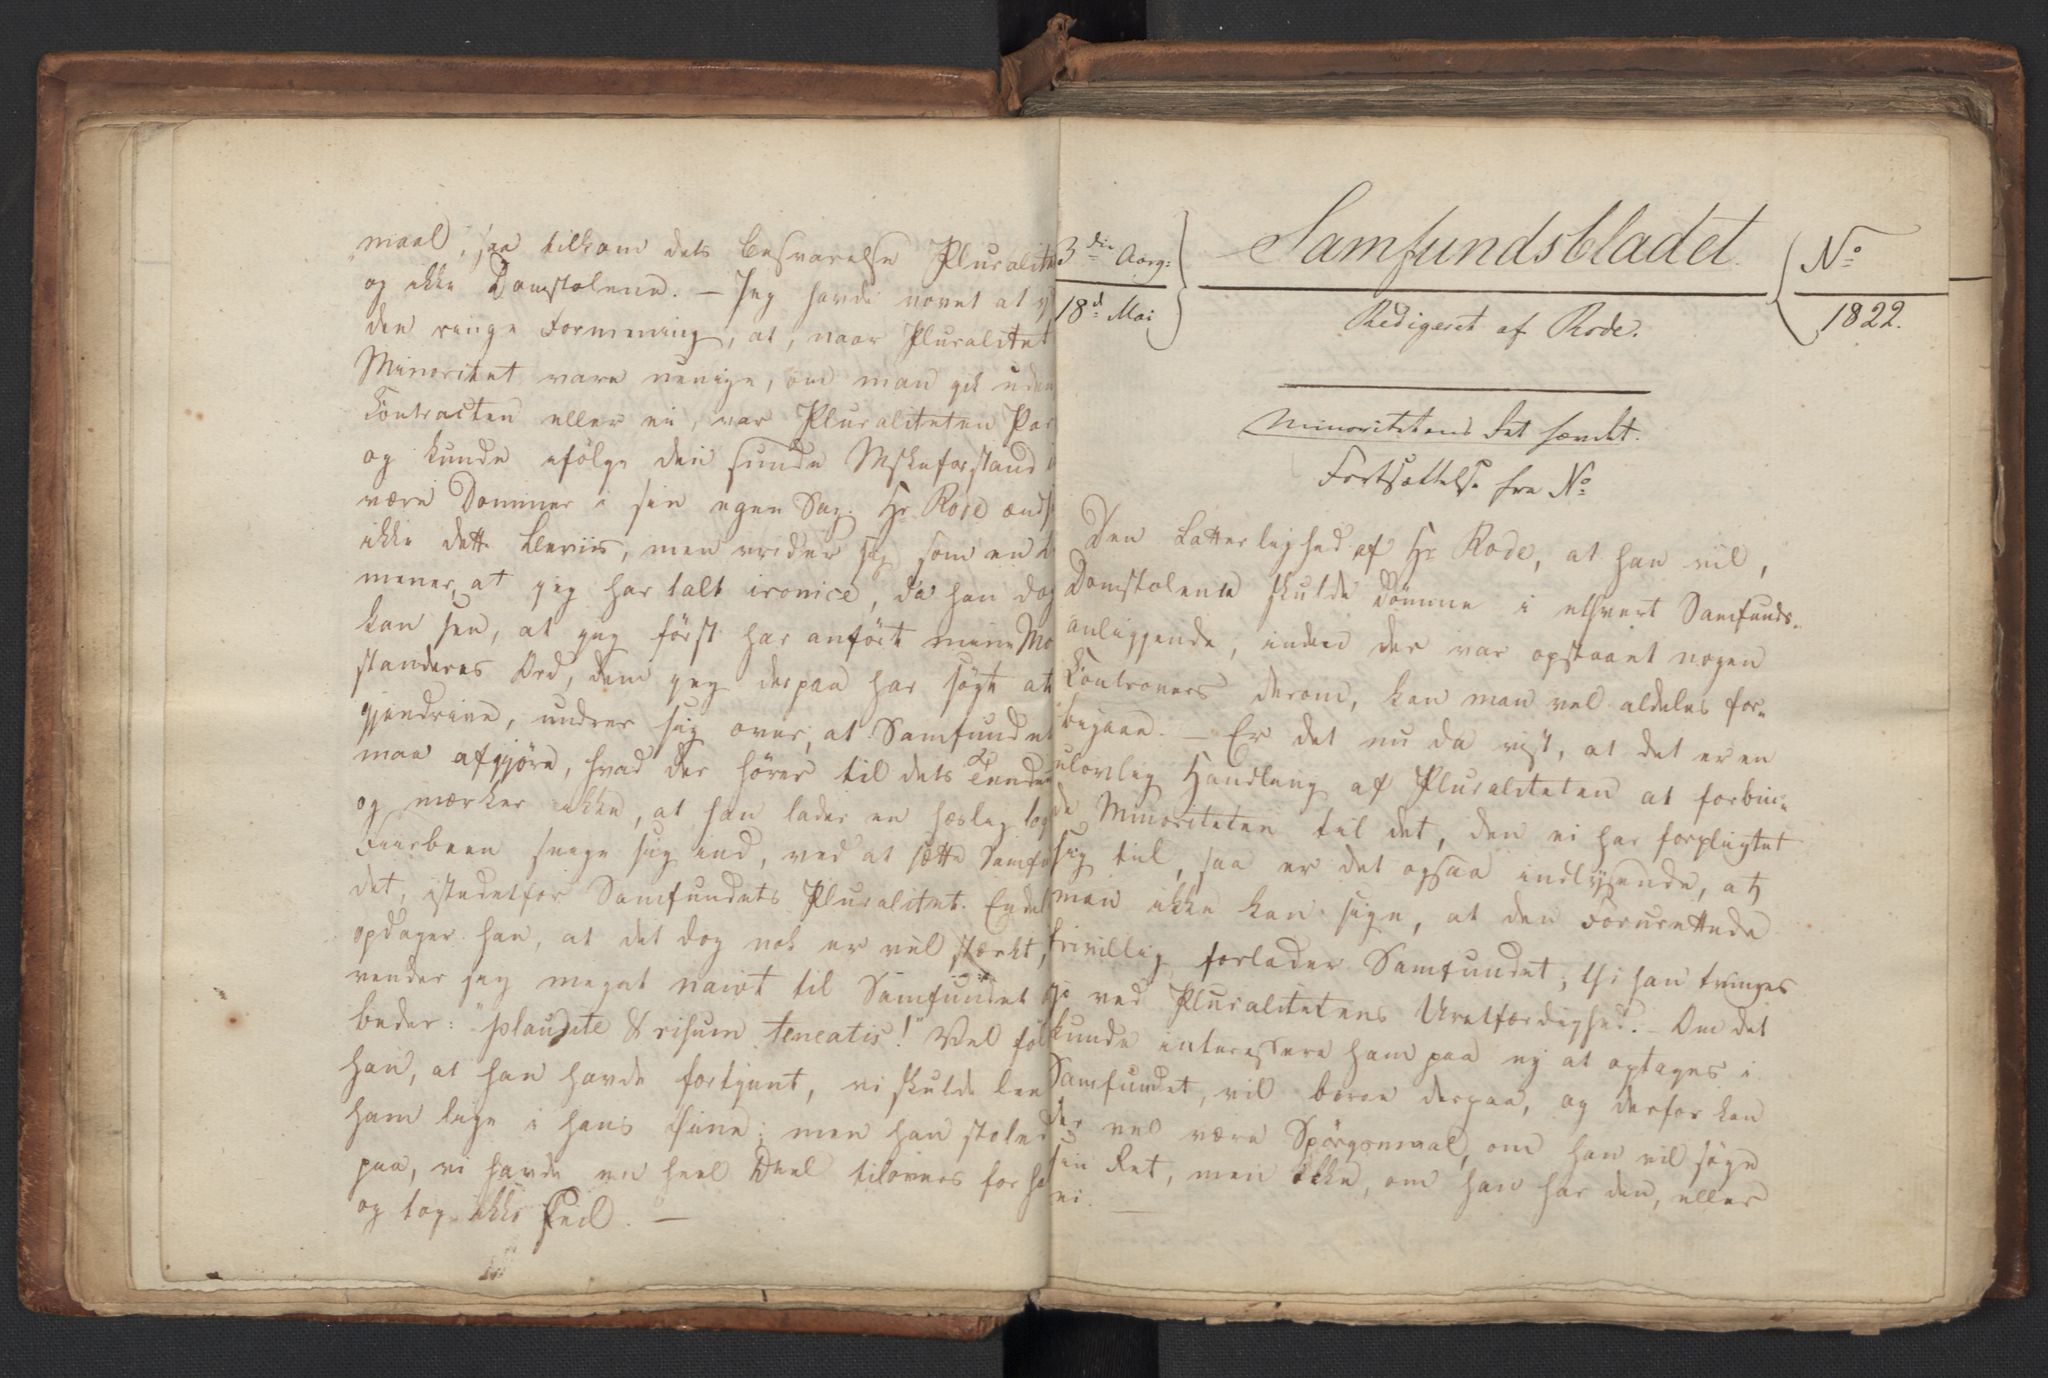 maal, saa tilkom dets Besvarelse Pluralite
og ikke Domstolene. – Jeg havde vovet at
den ringe Formening, at, naar Pluralitet
Minoritet vare uenige, om man gik uden
Contracten eller ei, var Pluraliteten Par
og kunde ifölge den sunde Mskeforstand
være Dommer i sin egen Sag. Hr Rode
ikke dette Beviis, men vrider sig som en
mener, at jeg har talt ironice, da han dog
kan see, at jeg först har anfört mine Mo
standeres Ord, dem jeg derpaa har sögt at
gjendrive, undrer sig over, at Samfundet
maa afgjöre, hvad der hörer til dets Tenden
og mærker ikke, at han lader en hæslig log
Fiirbeen snige sig ind, ved at sætte Samfu
det, istedetfor Samfundets Pluralitet. Endel
opdager han, at det dog nok er vel stærkt,
vender sig meget naivt til Samfundet
beder: "plaudite & risum teneatis!" Vel föl
han, at han havde fortjent, vi skulde lee
ham lige i hans Öine; men han stoler
paa, vi havde en heel Deel tilovers for ha
og tog ikke Feil. –
3die Aarg:
18d Mai
Samfundsbladet.
Redigeret af Rode.
No
1822.
Minoritetens Ret hævdet.
Fortsættelse fra No
Den Latterlighed af Hr Rode, at han vil,
Domstolene skulde dömme i ethvert Samfunds-
anliggende, inden der var opstaaet nogen
Controvers derom, kan man vel aldeles for-
bigaae. – Er det nu da vist, at det er en
ulovlig Handling af Pluraliteten at forbin-
de Minoriteten til det, den ei har forpligtet
sig til, saa er det ogsaa indlysende, at
man ikke kan sige, at den Forurettede
frivillig forlader Samfundet; thi han tvinges
jo ved Pluralitetens Uretfærdighed. – Om det
kunde interessere ham paa ny at optages i
Samfundet, vil beroe derpaa, og derfor kan
der vel være Spörgsmaal, om han vil söge
sin Ret, men ikke, om han har den, eller
ei. –